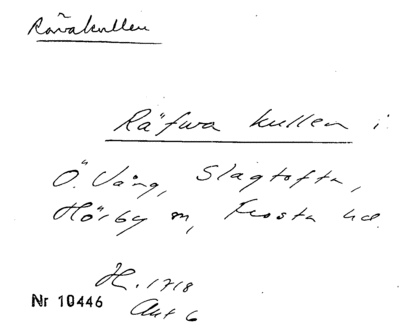 Rävakullen
Räfwa kullen i
Ö. Vång, Slagtofta,
Hörby sn, Frosta hd.
H. 1718
Akt 6
Nr 10446